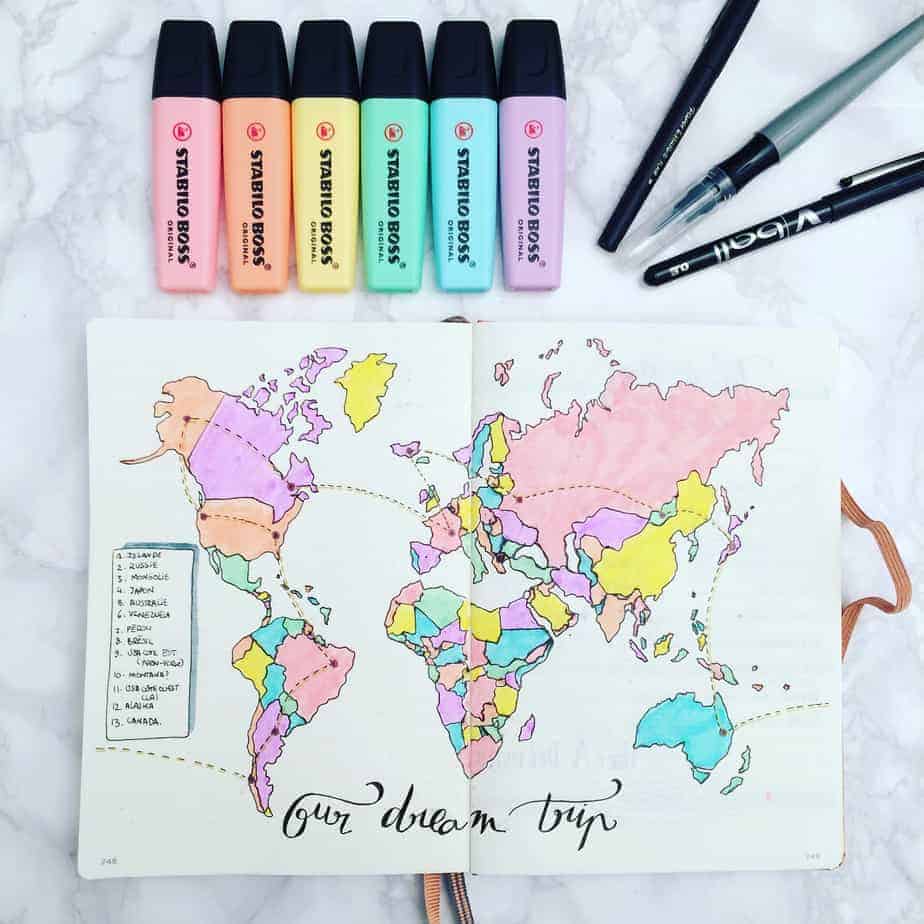 STABILO BOSS
ORIGINAL
STABILO BOSS
ORIGINAL
STABILO BOSS
ORIGINAL
STABILO BOSS
ORIGINAL
STABILO BOSS
ORIGINAL
STABILO BOSS
ORIGINAL
V ball
0.5
1. ISLANDE
2. RUSSIE
3. MONGOLIE
4. JAPON
5. AUSTRALIE
6. VENEZUELA
7. PÉROU
8. BRÉSIL
9. USA CÔTE EST
(NEW-YORK)
10. MONTANA?
11. USA CÔTE OUEST
(LA)
12. ALASKA
13. CANADA.
our dream trip
248
249